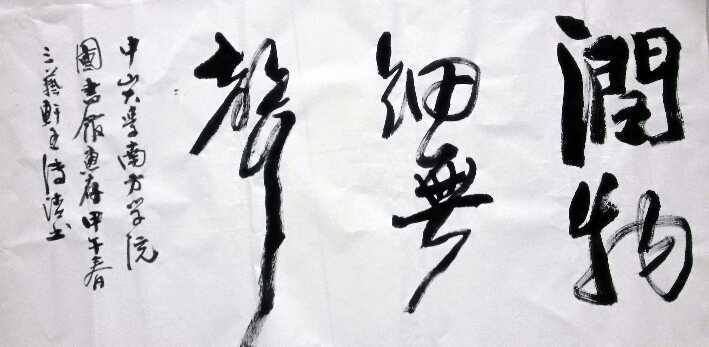 潤物
細無
聲
中山大學南方学院
圖書館惠存甲午春
三藝軒主清書